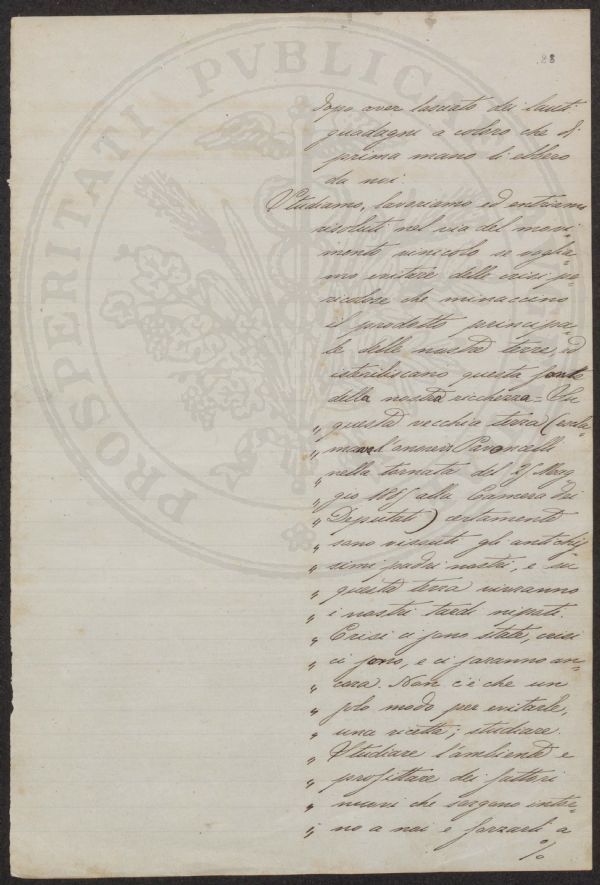 88
dopo aver lasciato dei lauti
guadagni a coloro che di
prima mano li ebbero
da noi.
Studiamo, lavoriamo ed entriamo
risoluti nel via del movi-
mento vinicolo se voglia-
mo evitare delle crisi pe-
ricolose che minaccino
il prodotto principa-
le delle nostre terre, ed
isteriliscano questa fonte
della nostra ricchezza = Su
„ questa vecchia terra (escla-
„ mava l'onorev. Pavoncelli
„ nella tornata del Mag-
„ gio alla Camera dei
„ Deputati) certamente
„ sono vissuti gli antichis-
„ simi padri nostri, e su
„ questa terra vivranno
„ i nostri tardi nipoti.
„ Crisi ci sono state, crisi
„ ci sono, e ci saranno an-
„ cora. Non c'è che un
„ solo modo per evitarle,
„ una ricetta; studiare.
„ Studiare l'ambiente e
„ profittare dei fattori
„ nuovi che sorgono intor-
„ no a noi e forzarli a
%
PROSPERITATI PVBLICAE